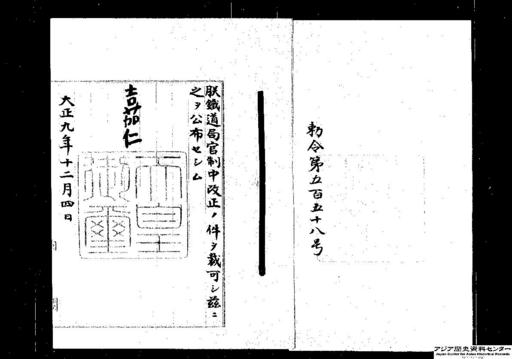 勅令第五百五十八号
朕鐵道局官制中改正ノ件ヲ裁可シ茲ニ
之ヲ公布セシム
嘉仁
天皇御璽
大正九年十二月四日
アジア歴史資料センター
Japan Center for Asian Historical Records